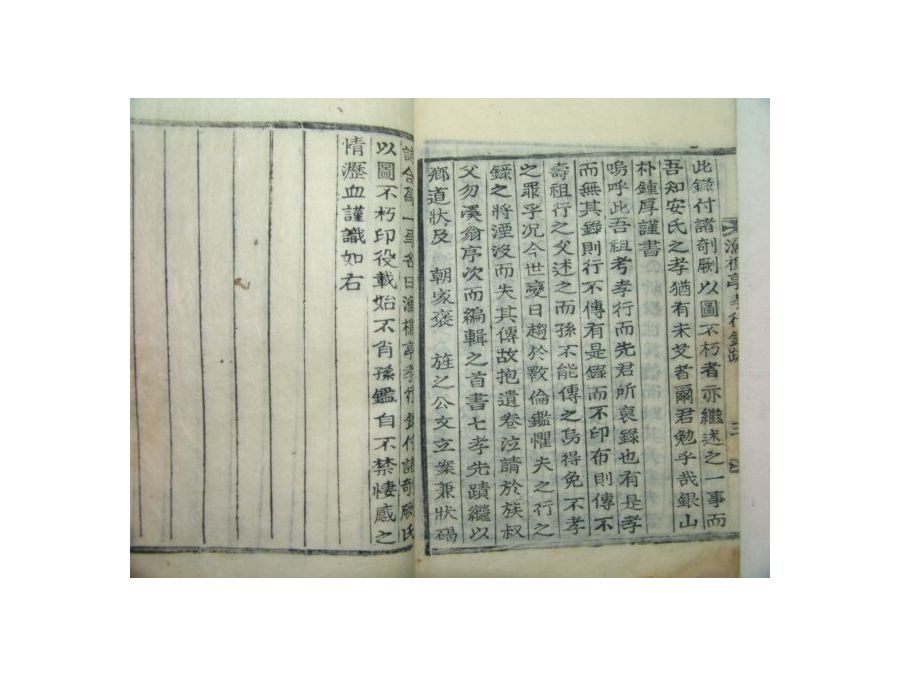 漁樵亭孝行錄跋
此錄付諸剞劂以圖不朽者亦繼述之一事而
吾知安氏之孝猶有未艾者爾君勉乎哉銀山
朴鍾厚謹書
嗚呼此吾祖考孝行而先君所裒錄也有是孝
而無其錄則行不傳有是錄而不印布則傳不
壽祖行之父述之而孫不能傳之烏得免不孝
之罪乎況今世變日趨於斁倫鑑懼夫之行之
錄之將湮沒而失其傳故抱遺卷泣請於族叔
父勿溪翁序次而編輯之首書七孝先蹟繼以
鄉道狀及 朝家褒 旌之公文立案兼狀碣
合為一 名曰漁樵亭孝行錄付諸奇厥氏
以圖不朽印役載始不肖孫鑑自不禁悽感之
情瀝血謹識如右